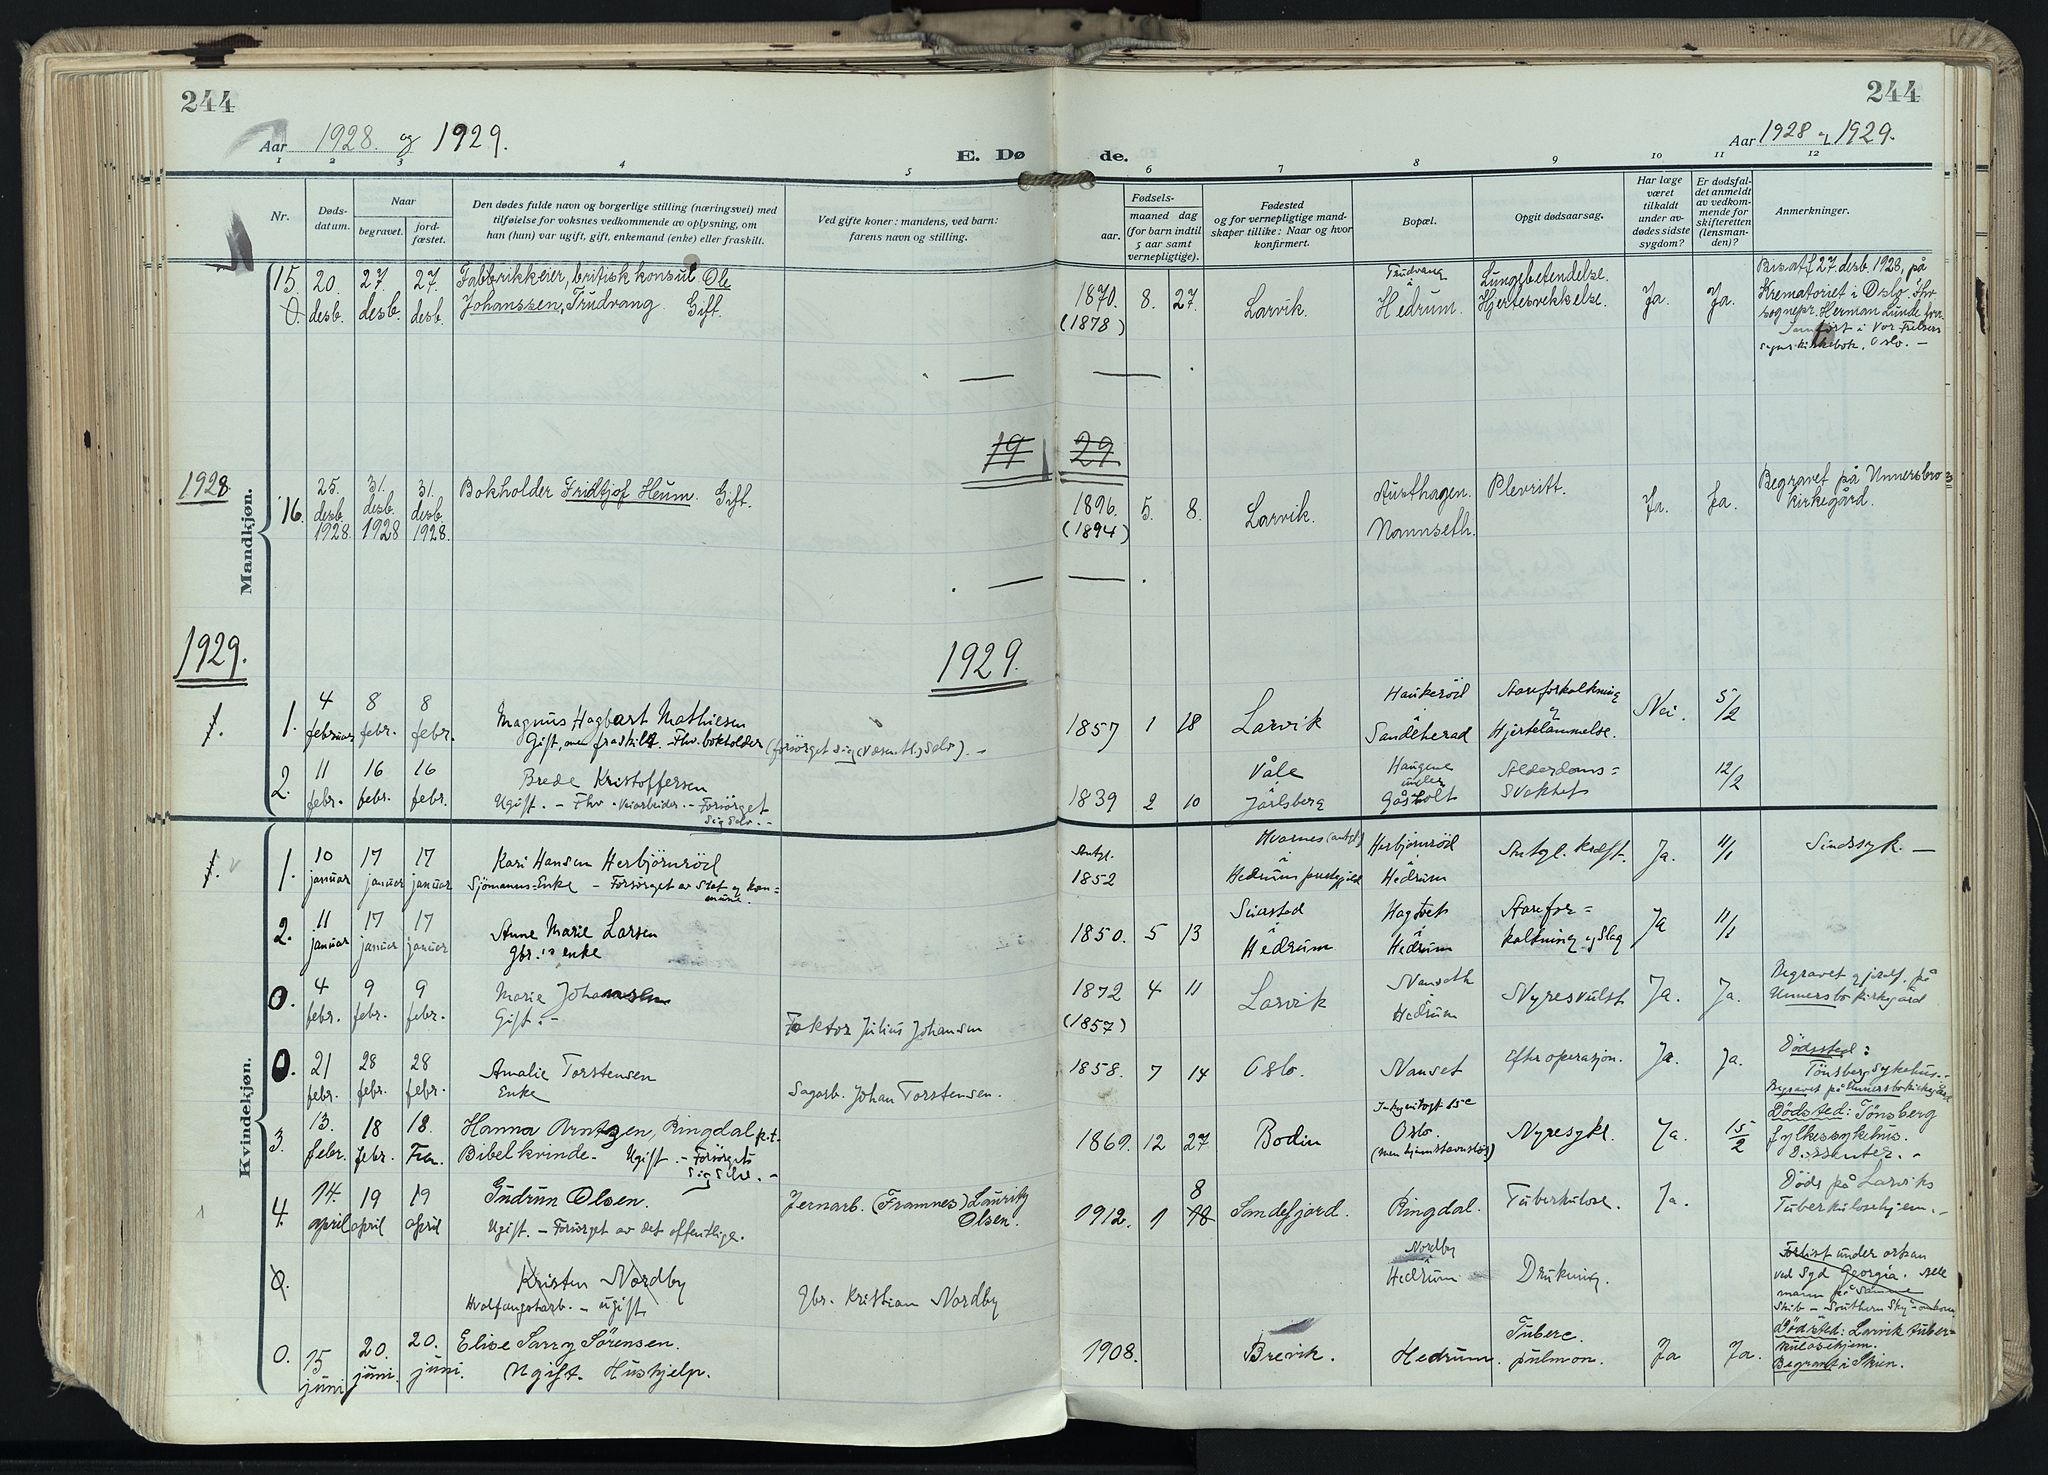 244
244
Aar 1928 og 1929.
E. Døde.
Aar 1928 og 1929.
1 2 3 4 5 6 7 8 9 10 11 12
Nr.
Døds-
datum.
Naar
begravet.
jord-
fæstet.
Den dødes fulde navn og borgerlige stilling (næringsvei) med
tilføielse for voksnes vedkommende av oplysning, om
han (hun) var ugift, gift, enkemand (enke) eller fraskilt.
Ved gifte koner: mandens, ved barn:
farens navn og stilling.
Fødsels-
aar.
maaned dag
(for barn indtil
5 aar samt
vernepligtige).
Fødested
og for vernepligtige mand-
skaper tillike: Naar og hvor
konfirmert.
Bopæl.
Opgit dødsaarsag.
Har læge
været
tilkaldt
under av-
dødes sidste
sygdom?
Er dødsfal-
det anmeldt
av vedkom-
mende for
skifteretten
(lensman-
den)?
Anmerkninger.
Mandkjøn.
15. 0. 20. desb. 27. desb. 27. desb.
Fabbrikkeier, britisk konsul Ole
Johanssen, Trudvang. Gift.
1870. (1878) 8. 27. Larvik.
Trudvang
i
Hedrum.
Lungebetendelse.
Hjertesvekkelse.
Ja. Ja.
Bisatt 27. desb. 1928, på
Krematoriet i Oslo. Fhv.
sognepr. Herman Lunde forr.
Innført i Vor Frelsers
sogns kirkebok, Oslo. —
19 29
1928
16. 25. desb. 1928. 31. desb. 1928 31. desb. 1928.
Bokholder Fridtjof Heum. Gift.
1896. (1894) 5. 8. Larvik.
Nannseth.
Plevritt.
Ja. Ja.
Begravet på Unnersbro
kirkegård.
1929. 1929.
1. 1. 4 februar 8 febr. 8 febr.
Magnus Hagbart Mathiesen
Gift, men fraskilt. — Fhv. bokholder (forsørget sig (væsentl.) selv). —
1857 1 18 Larvik
Haukerød
i
Sandeherad
Aareforkalkning
og
Hjertelammelse.
Nei. 5/2
2. 11 febr. 16 febr. 16 febr.
Brede Kristoffersen
Ugift. — Fhv. veiarbeider. — Forsørget
sig selv. —
1839 2 10
Våle
Jarlsberg
Haugene
under
Gåsholt
Alderdoms=
svakhet
12/2
Kvindekjøn.
1. 1. 10 januar 17 januar 17 januar
Kari Hansen Herbjørnrød
Sjömanns-Enke — Forsørget av Stat og kom=
mune.
Antgl. 1852
Hvarnes (antgl.)
i
Hedrum prestegjeld
Herbjørnrød
i
Hedrum
Antgl. kræft. Ja. 11/1 Sindssyk. —
2. 11 januar 17 januar 17 januar
Anne Marie Larsen
gbr.'s enke
1850. 5 13
Seiersted
i
Hedrum
Hagtvet
i
Hedrum
Aarefor=
kalkning og Slag
Ja 11/1
0. 4 febr. 9 febr. 9 febr.
Marie Johannesen
Gift. —
Faktor Julius Johansen
1872 (1857) 4 11 Larvik
Nanseth
i
Hedrum
Nyresvulst Ja. Ja.
Begravet og jordf. på
Unnersbo kirkegård
0. 21 febr. 28 febr. 28 febr.
Amalie Torstensen
Enke
Sagarb. Johan Torstensen.
1858. 7 14 Oslo. Nanset Efter operasjon. Ja. Ja.
Dödssted:
Tönsberg Sykehus.
Begravet på Unnersbo kirkegård
3. 13. febr. 18 febr. 18.
Hanna Arntzen, Ringdal p.t.
Bibelkvinde. Ugift. — Forsørget
sig selv. —
1869. 12 27 Bodin
Oslo.
Nyresyke. Ja. 15/2
Dödsted: Tönsberg
fylkessykehus.
Dissenter. —
4. 14. april 19 april 19 april
Gudrun Olsen.
Ugift. — Forsørget av det offentlige.
Jernarb. (Framnes) Lauritz
Olsen.
1912. 1 8 18 Sandefjord. Ringdal. Tuberkulose. Ja.
Död på Larviks
Tuberkulosehjem. —
0.
Kristen Nordby
Hvalfangstarb. — ugift
Gbr. Kristian Nordby
Nordby
i
Hedrum
Drukning.
Forlist under orkan
ved Syd Georgia. Alle
mann på samme
Skib — "Southern Sky" — omkom
0. 15 juni 20. juni 20. juni.
Elise Sørensen.
Ugift. Hushjelp.
1908. Brevik. Hedrum.
Tuberc.
pulmon.
Ja Ja.
Dödsted: Larvik tuber=
kulosehjem.
Begravet i Skien.